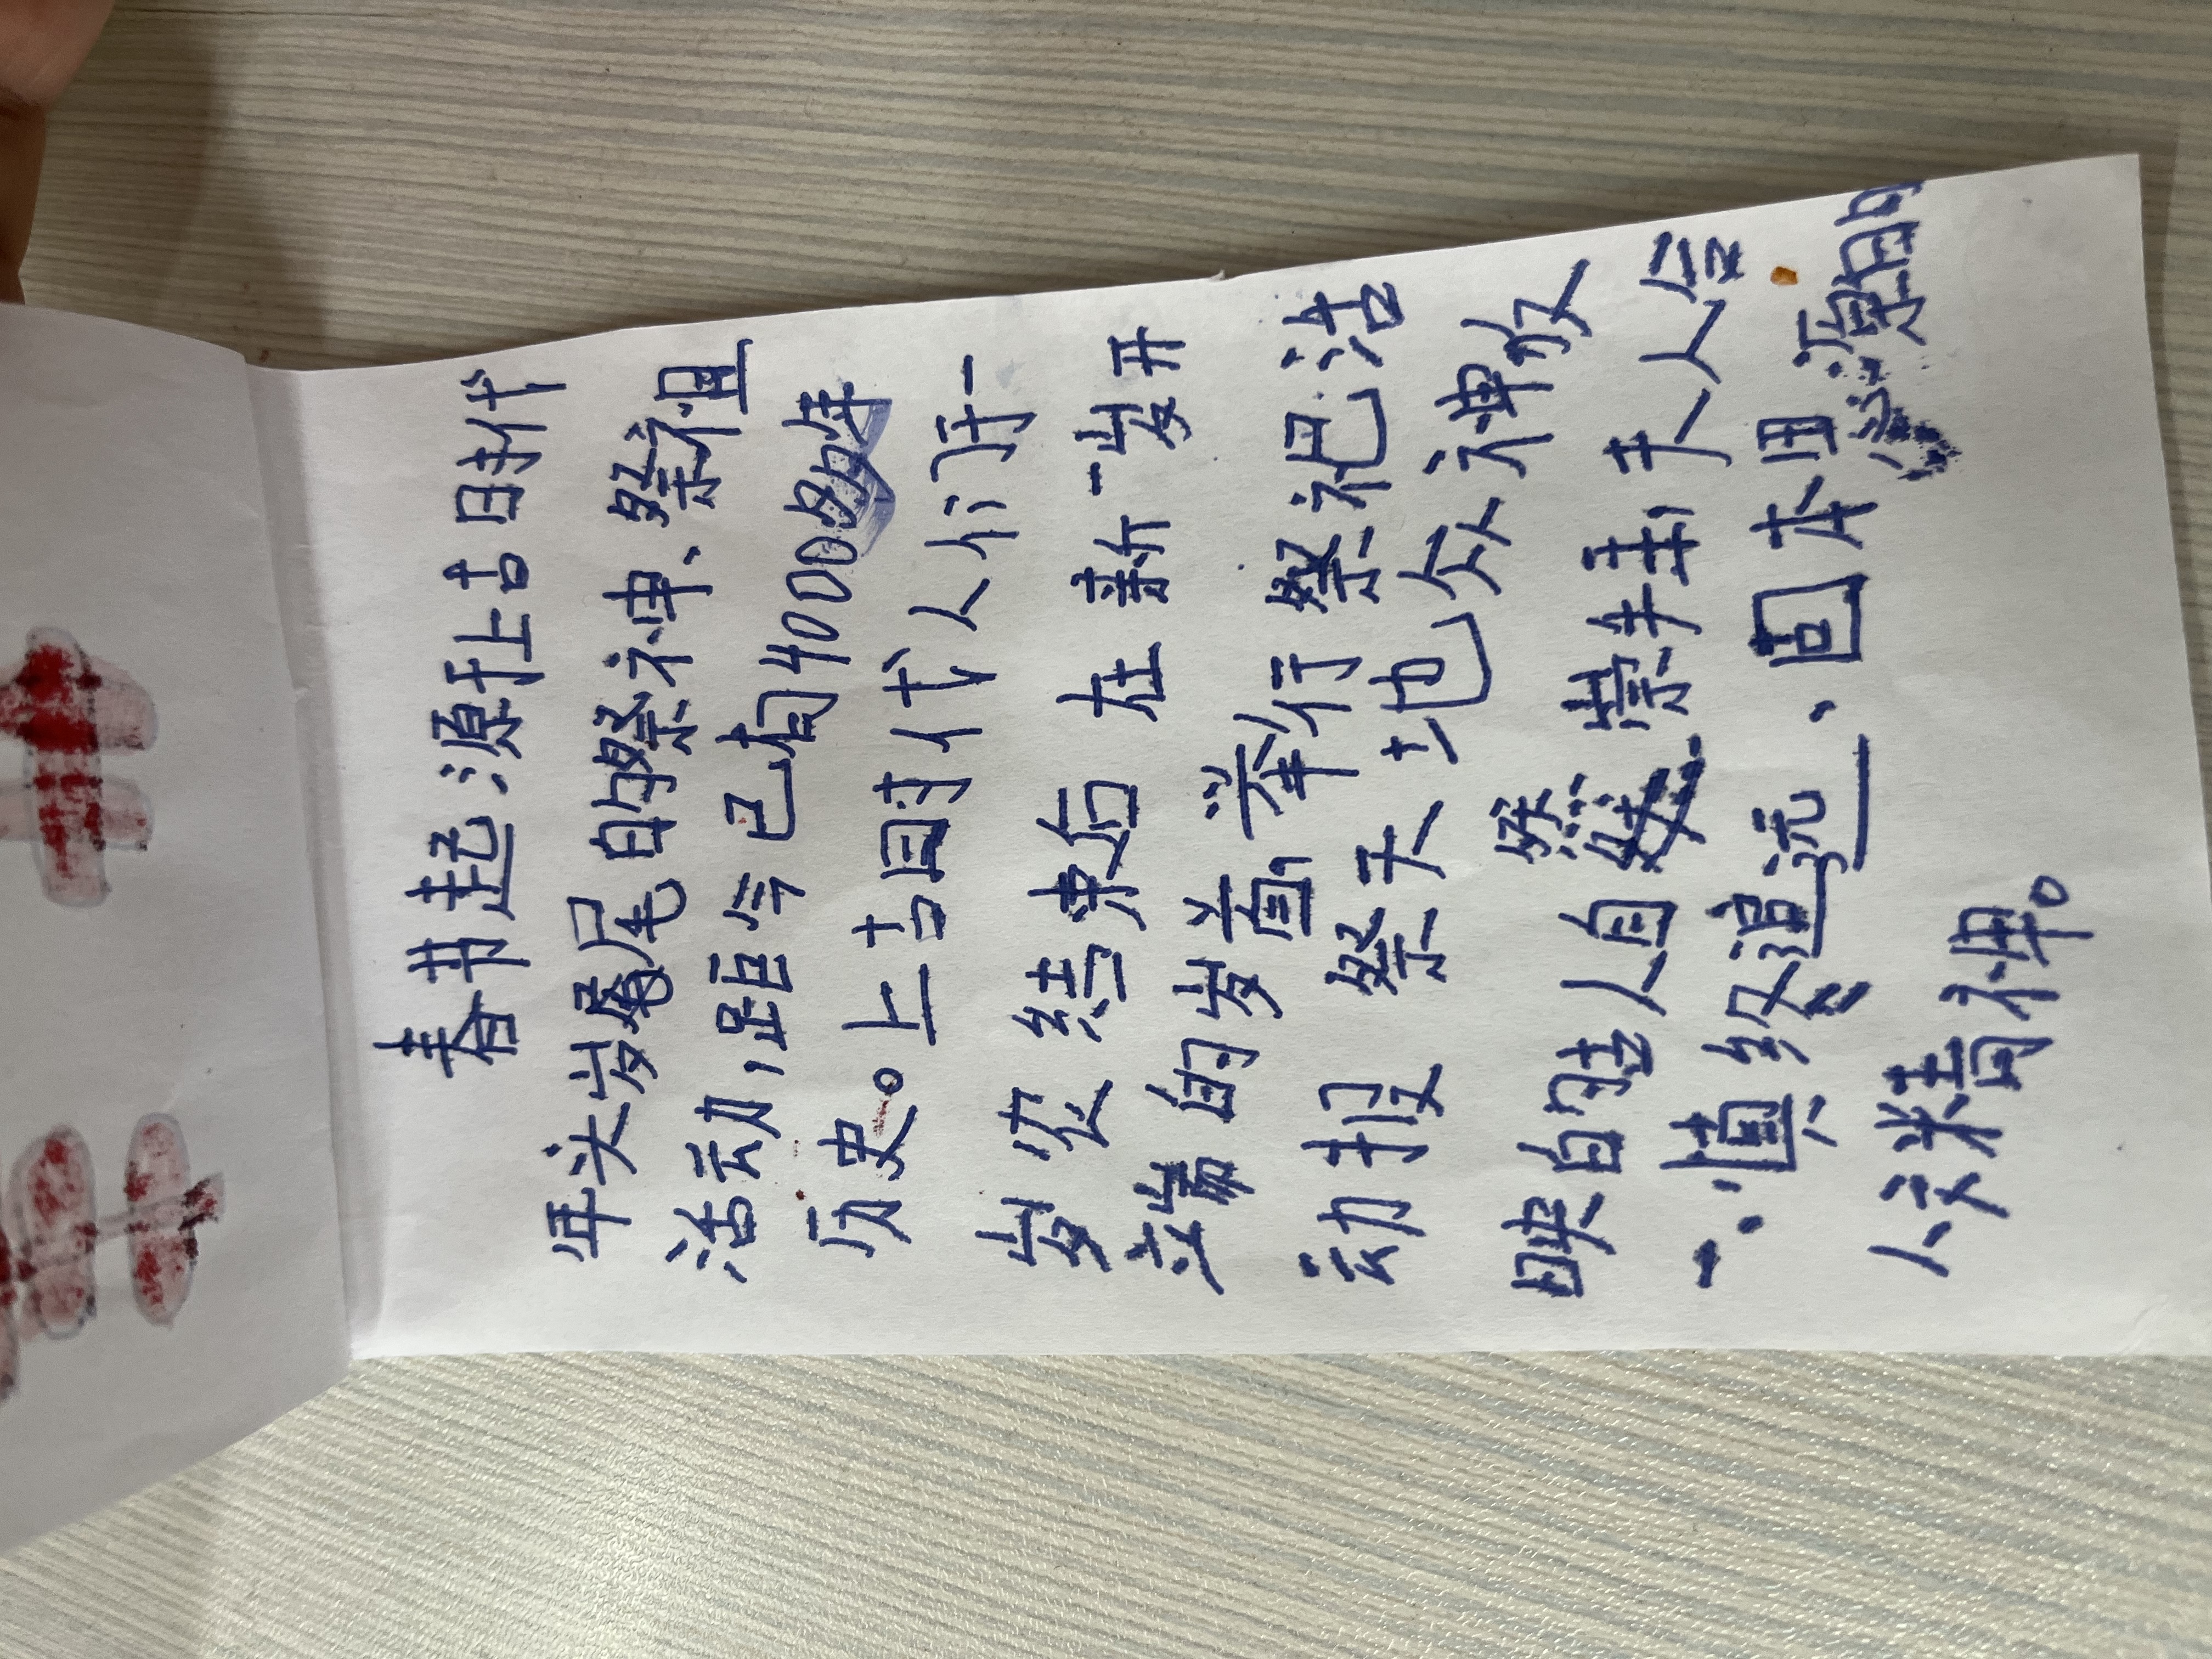 春节起源于上古时代
年头岁尾的祭神、祭祖
活动，距今已有4000多年
历史。上古时代人们于一
岁农结束后在新一岁开
端的岁首，举行祭祀活
动报祭天地众神收
映的哇人自然崇拜，天人合
一.慎终追远、固本思源的
人文精神。